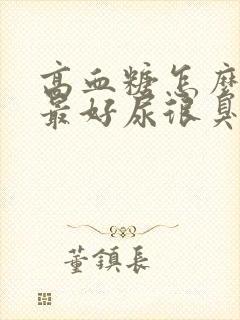 高血糖怎麼
最好尿很臭
董鎮長